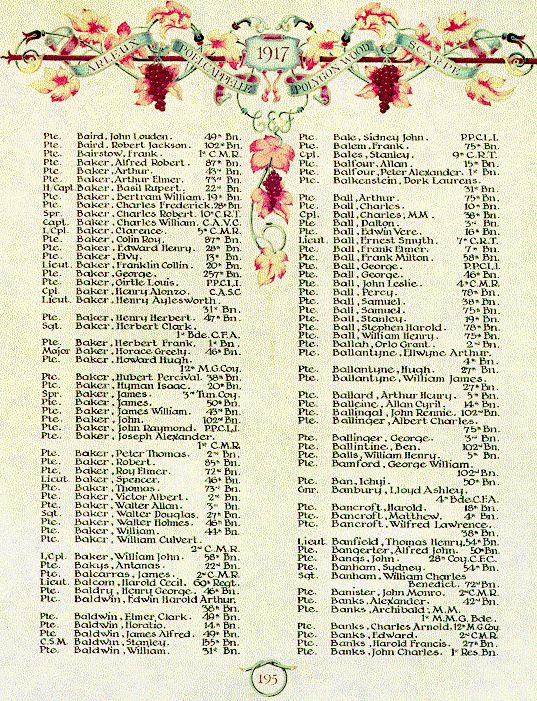 ARLEUX
POELCAPPELLE
1917
POLYGON WOOD
SCARPE
C.E.F.
Pte. Baird, John Louden. 49th Bn.
Pte. Baird, Robert Jackson. 102nd Bn.
Pte. Bairstow, Frank. 1st C.M.R.
Pte. Baker, Alfred Robert. 87th Bn.
Pte. Baker, Arthur. 43th Bn.
Pte. Baker, Arthur Elmer. 75th Bn.
H/Capt. Baker, Basil Rupert. 22nd Bn.
Pte. Baker, Bertram William. 19th Bn.
Pte. Baker, Charles Frederick. 28th Bn.
Spr. Baker, Charles Robert. 10th C.R.T.
Capt. Baker, Charles William. C.A.V.C.
L/Cpl. Baker, Clarence. 5th C.M.R.
Pte. Baker, Colin Roy. 87th Bn.
Pte. Baker, Edward Henry. 28th Bn.
Pte. Baker, Evvy. 13th Bn.
Lieut. Baker, Franklin Collin. 20th Bn.
Pte. Baker, George. 257th Bn.
Pte. Baker, Girtle Louis. P.P.C.L.I.
Cpl. Baker, Henry Alonzo. C.A.S.C.
Lieut. Baker, Henry Aylesworth.
31st Bn.
Pte. Baker, Henry Herbert. 47th Bn.
Sgt. Baker, Herbert Clark.
1st Bde. C.F.A.
Pte. Baker, Herbert Frank. 1st Bn.
Major Baker, Horace Greely. 46th Bn.
Pte. Baker, Howard Hugh.
12th M.G. Coy.
Pte. Baker, Hubert Percival. 38th Bn.
Pte. Baker, Hyman Isaac. 20th Bn.
Spr. Baker, James. 3rd Tun. Coy.
Pte. Baker, James. 50th Bn.
Pte. Baker, James William. 43rd Bn.
Pte. Baker, John. 102nd Bn.
Pte. Baker, John Raymond. P.P.C.L.I.
Pte. Baker, Joseph Alexander.
1st C.M.R.
Pte. Baker, Peter Thomas. 2nd Bn.
Pte. Baker, Robert. 85th Bn.
Pte. Baker, Roy Elmer. 72nd Bn.
Lieut. Baker, Spencer. 46th Bn.
Pte. Baker, Thomas. 73rd Bn.
Pte. Baker, Victor Albert. 2nd Bn.
Pte. Baker, Walter Allan. 3rd Bn.
Sgt. Baker, Walter Douglas. 27th Bn.
Pte. Baker, Walter Holmes. 46th Bn.
Pte. Baker, William. 44th Bn.
Pte. Baker, William Culvert.
2nd C.M.R.
L/Cpl. Baker, William John. 58th Bn.
Pte. Bakys, Antanas. 22nd Bn.
Pte. Balcarras, James. 2nd C.M.R.
Lieut. Balcom, Harold Cecil. 60th Regt.
Pte. Baldry, Henry George. 46th Bn.
Pte. Baldwin, Edwin Harold Arthur.
38th Bn.
Pte. Baldwin, Elmer Clark. 49th Bn.
Pte. Baldwin, Horatio. 14th Bn.
Pte. Baldwin, James Alfred. 49th Bn.
C.S.M. Baldwin, Stanley. 155th Bn.
Pte. Baldwin, William. 31st Bn.
Pte. Bale, Sidney John. P.P.C.L.I.
Pte. Balem, Frank. 75th Bn.
Cpl. Bales, Stanley. 9th C.R.T.
Pte. Balfour, Allan. 15th Bn.
Pte. Balfour, Peter Alexander. 1st Bn.
Pte. Balkenstein, Dork Laurens.
31st Bn.
Pte. Ball, Arthur. 75th Bn.
Pte. Ball, Charles. 10th Bn.
Cpl. Ball, Charles; M.M. 38th Bn.
Pte. Ball, Dalton. 3rd Bn.
Pte. Ball, Edwin Vere. 16th Bn.
Lieut. Ball, Ernest Smyth. 7th C.R.T.
Pte. Ball, Frank Elmer. 7th Bn.
Pte. Ball, Frank Milton. 58th Bn.
Pte. Ball, George. P.P.C.L.I.
Pte. Ball, George. 46th Bn.
Pte. Ball, John Leslie. 4th C.M.R.
Pte. Ball, Percy. 78th Bn.
Pte. Ball, Samuel. 38th Bn.
Pte. Ball, Samuel. 75th Bn.
Pte. Ball, Stanley. 19th Bn.
Pte. Ball, Stephen Harold. 78th Bn.
Pte. Ball, William Henry. 75th Bn.
Pte. Ballah, Orlo Grant. 2nd Bn.
Pte. Ballantyne, Ellwyne Arthur.
4th Bn.
Pte. Ballantyne, Hugh. 27th Bn.
Pte. Ballantyne, William James.
27th Bn.
Pte. Ballard, Arthur Henry. 5th Bn.
Pte. Balleine, Allan Cyril. 14th Bn.
Pte. Ballingal, John Rennie. 102nd Bn.
Pte. Ballinger, Albert Charles.
75th Bn.
Pte. Ballinger, George. 3rd Bn.
Pte. Ballintine, Ben. 102nd Bn.
Pte. Balls, William Henry. 5th Bn.
Pte. Bamford, George William.
102nd Bn.
Pte. Ban, Ichyi. 50th Bn.
Gnr. Banbury, Lloyd Ashley.
4th Bde. C.F.A.
Pte. Bancroft, Harold. 18th Bn.
Pte. Bancroft, Matthew. 4th Bn.
Pte. Bancroft, Wilfred Lawrence.
38th Bn.
Lieut. Banfield, Thomas Henry. 54th Bn.
Pte. Bangerter, Alfred John. 50th Bn.
Pte. Bangs, John. 28th Coy. C.F.C.
Pte. Banham, Sydney. 54th Bn.
Sgt. Banham, William Charles
Benedict. 72nd Bn.
Pte. Banister, John Monro. 2nd C.M.R.
Pte. Banks, Alexander. 42nd Bn.
Pte. Banks, Archibald; M.M.
1st M.M.G. Bde.
Pte. Banks, Charles Arnold. 12th M.G. Coy.
Pte. Banks, Edward. 2nd C.M.R.
Pte. Banks, Harold Francis. 27th Bn.
Pte. Banks, John Charles. 1st Res. Bn.
195